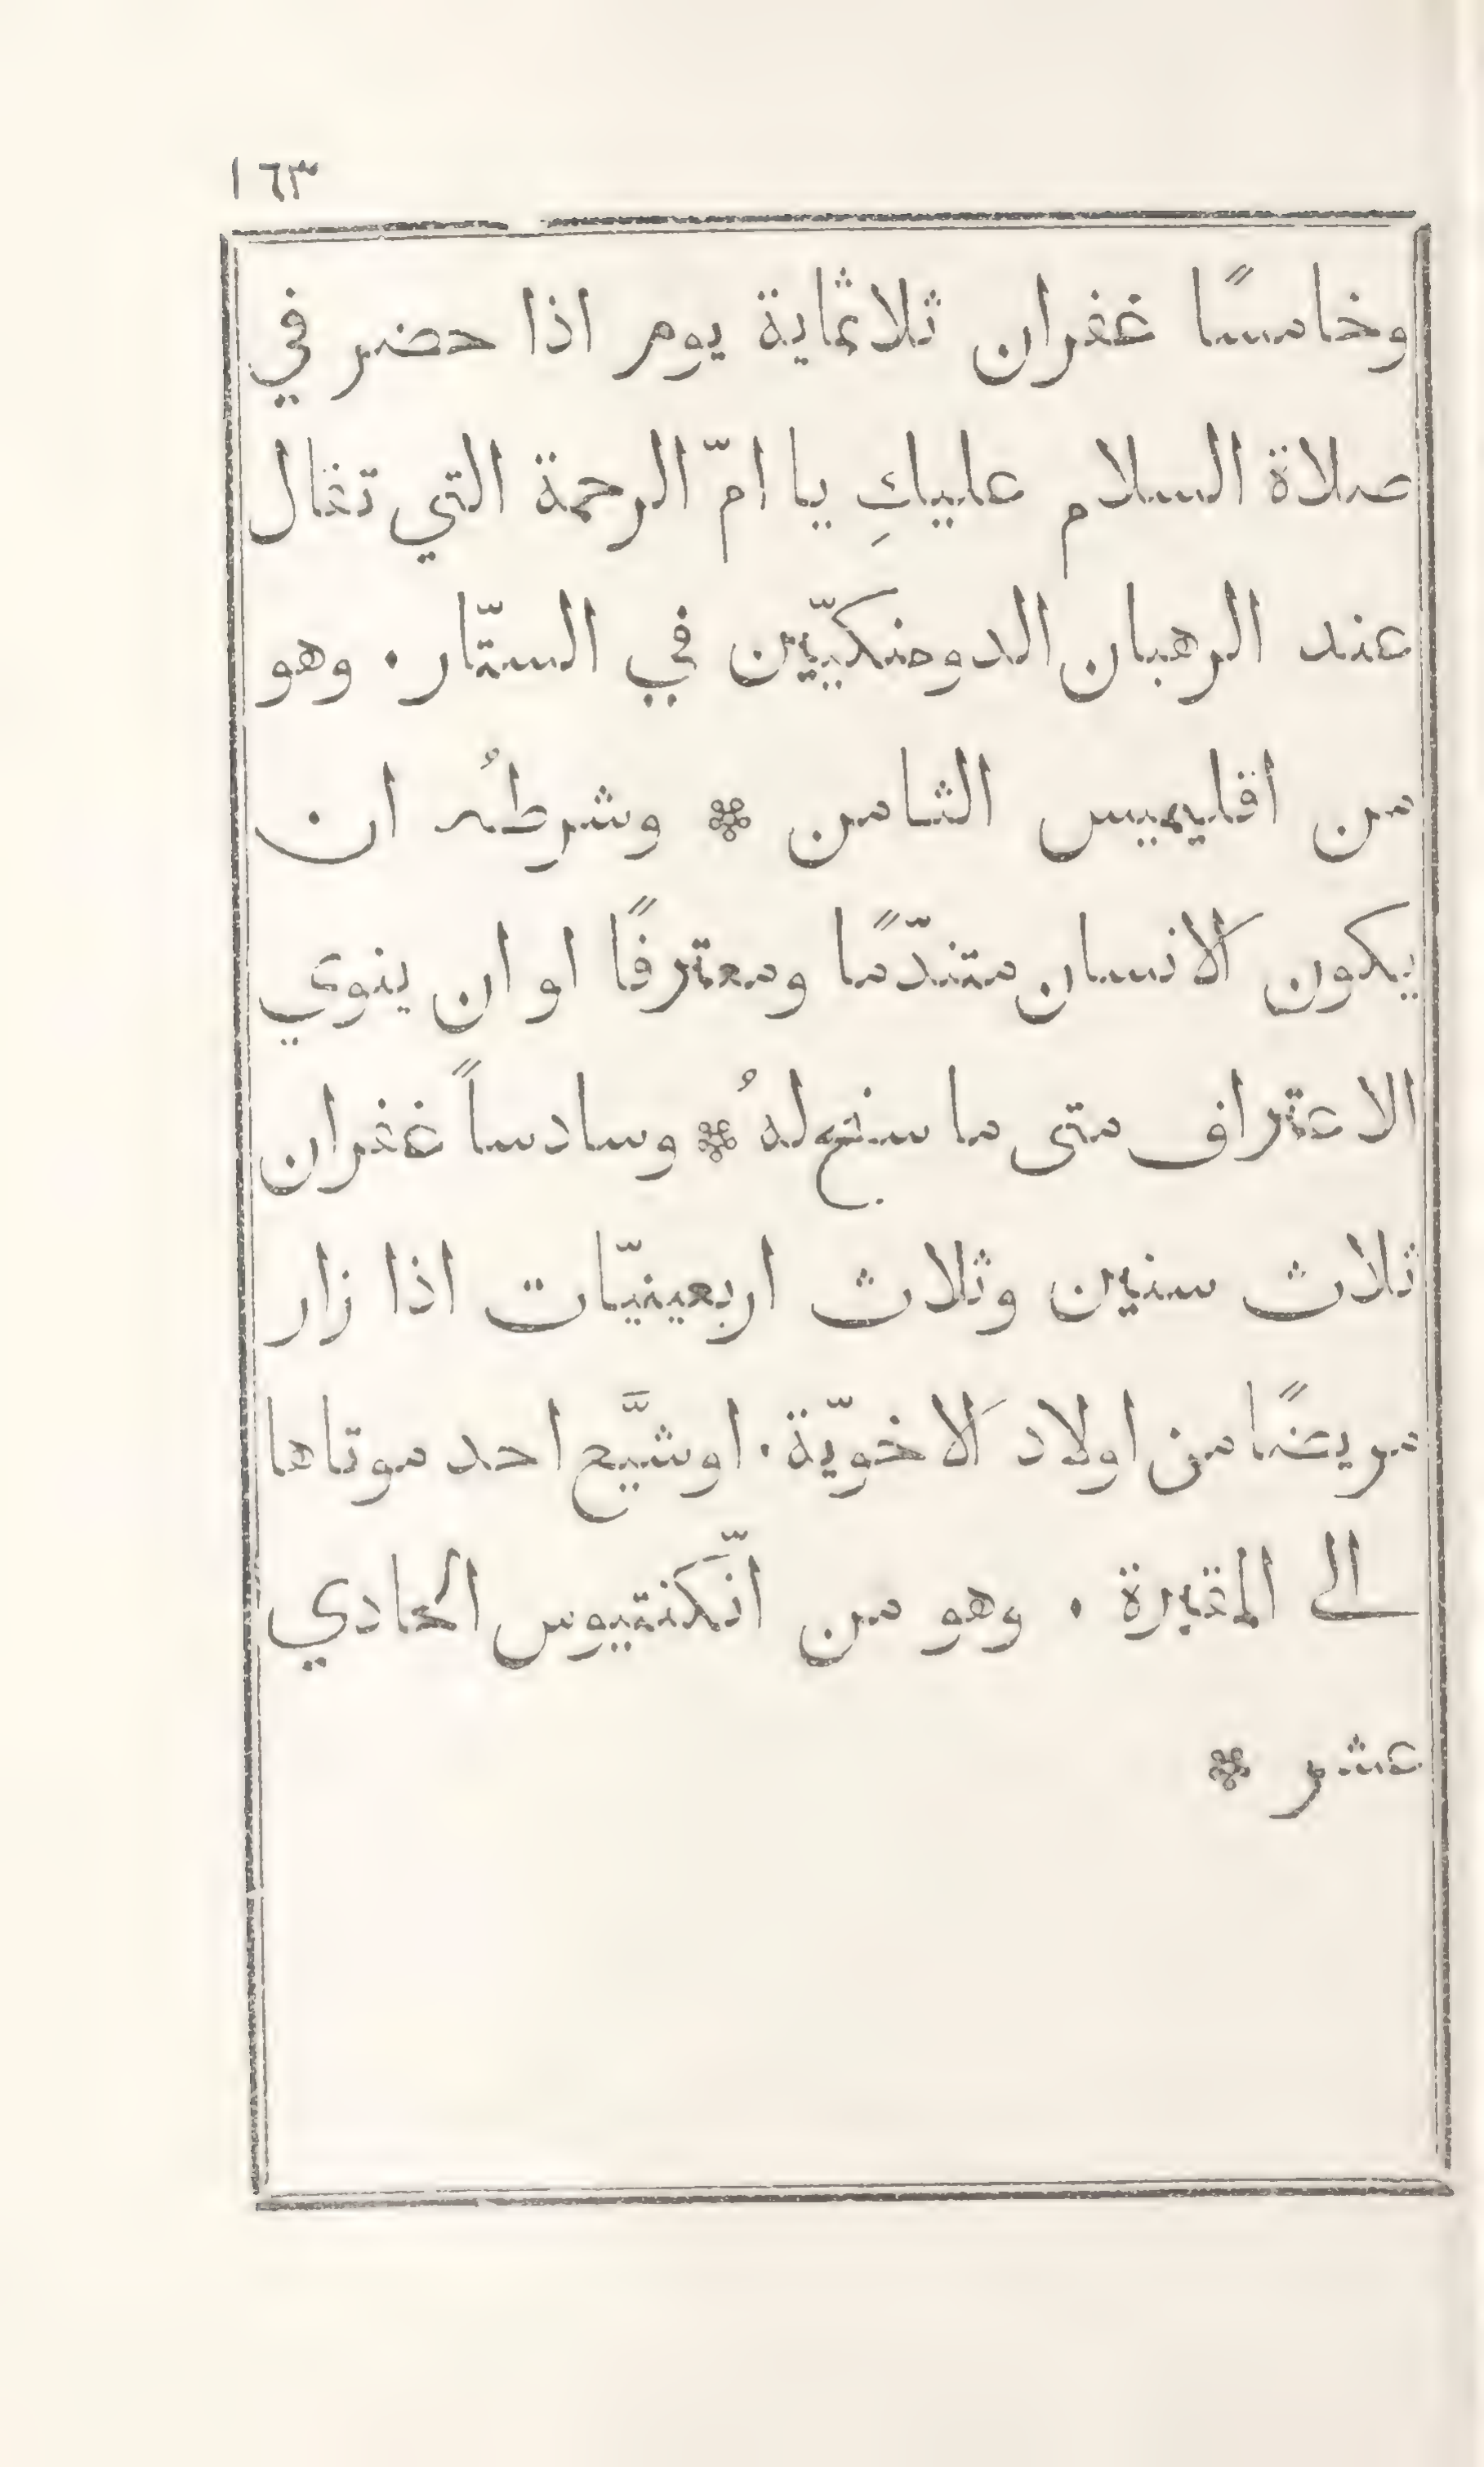 ١٦٣
وخامسًا غفران ثلاثماية يوم اذا حضر في
صلاة السلام عليكِ يا امّ الرحمة التي تقال
عند الرهبان الدومنكيّين في الستّار . وهو
من اقليميس الثامن ❊ وشرطهُ ان
يكون الانسان متندّمًا ومعترفًا او ان ينوي
الاعتراف متى ما سنح لهُ ❊ وسادساً غفران
ثلاث سنين وثلاث اربعينيّات اذا زار
مريضًا من اولاد الاخويّة . او شيَّع احد موتاها
الى المقبرة . وهو من انّكنتيوس الحادي
عشر ❊